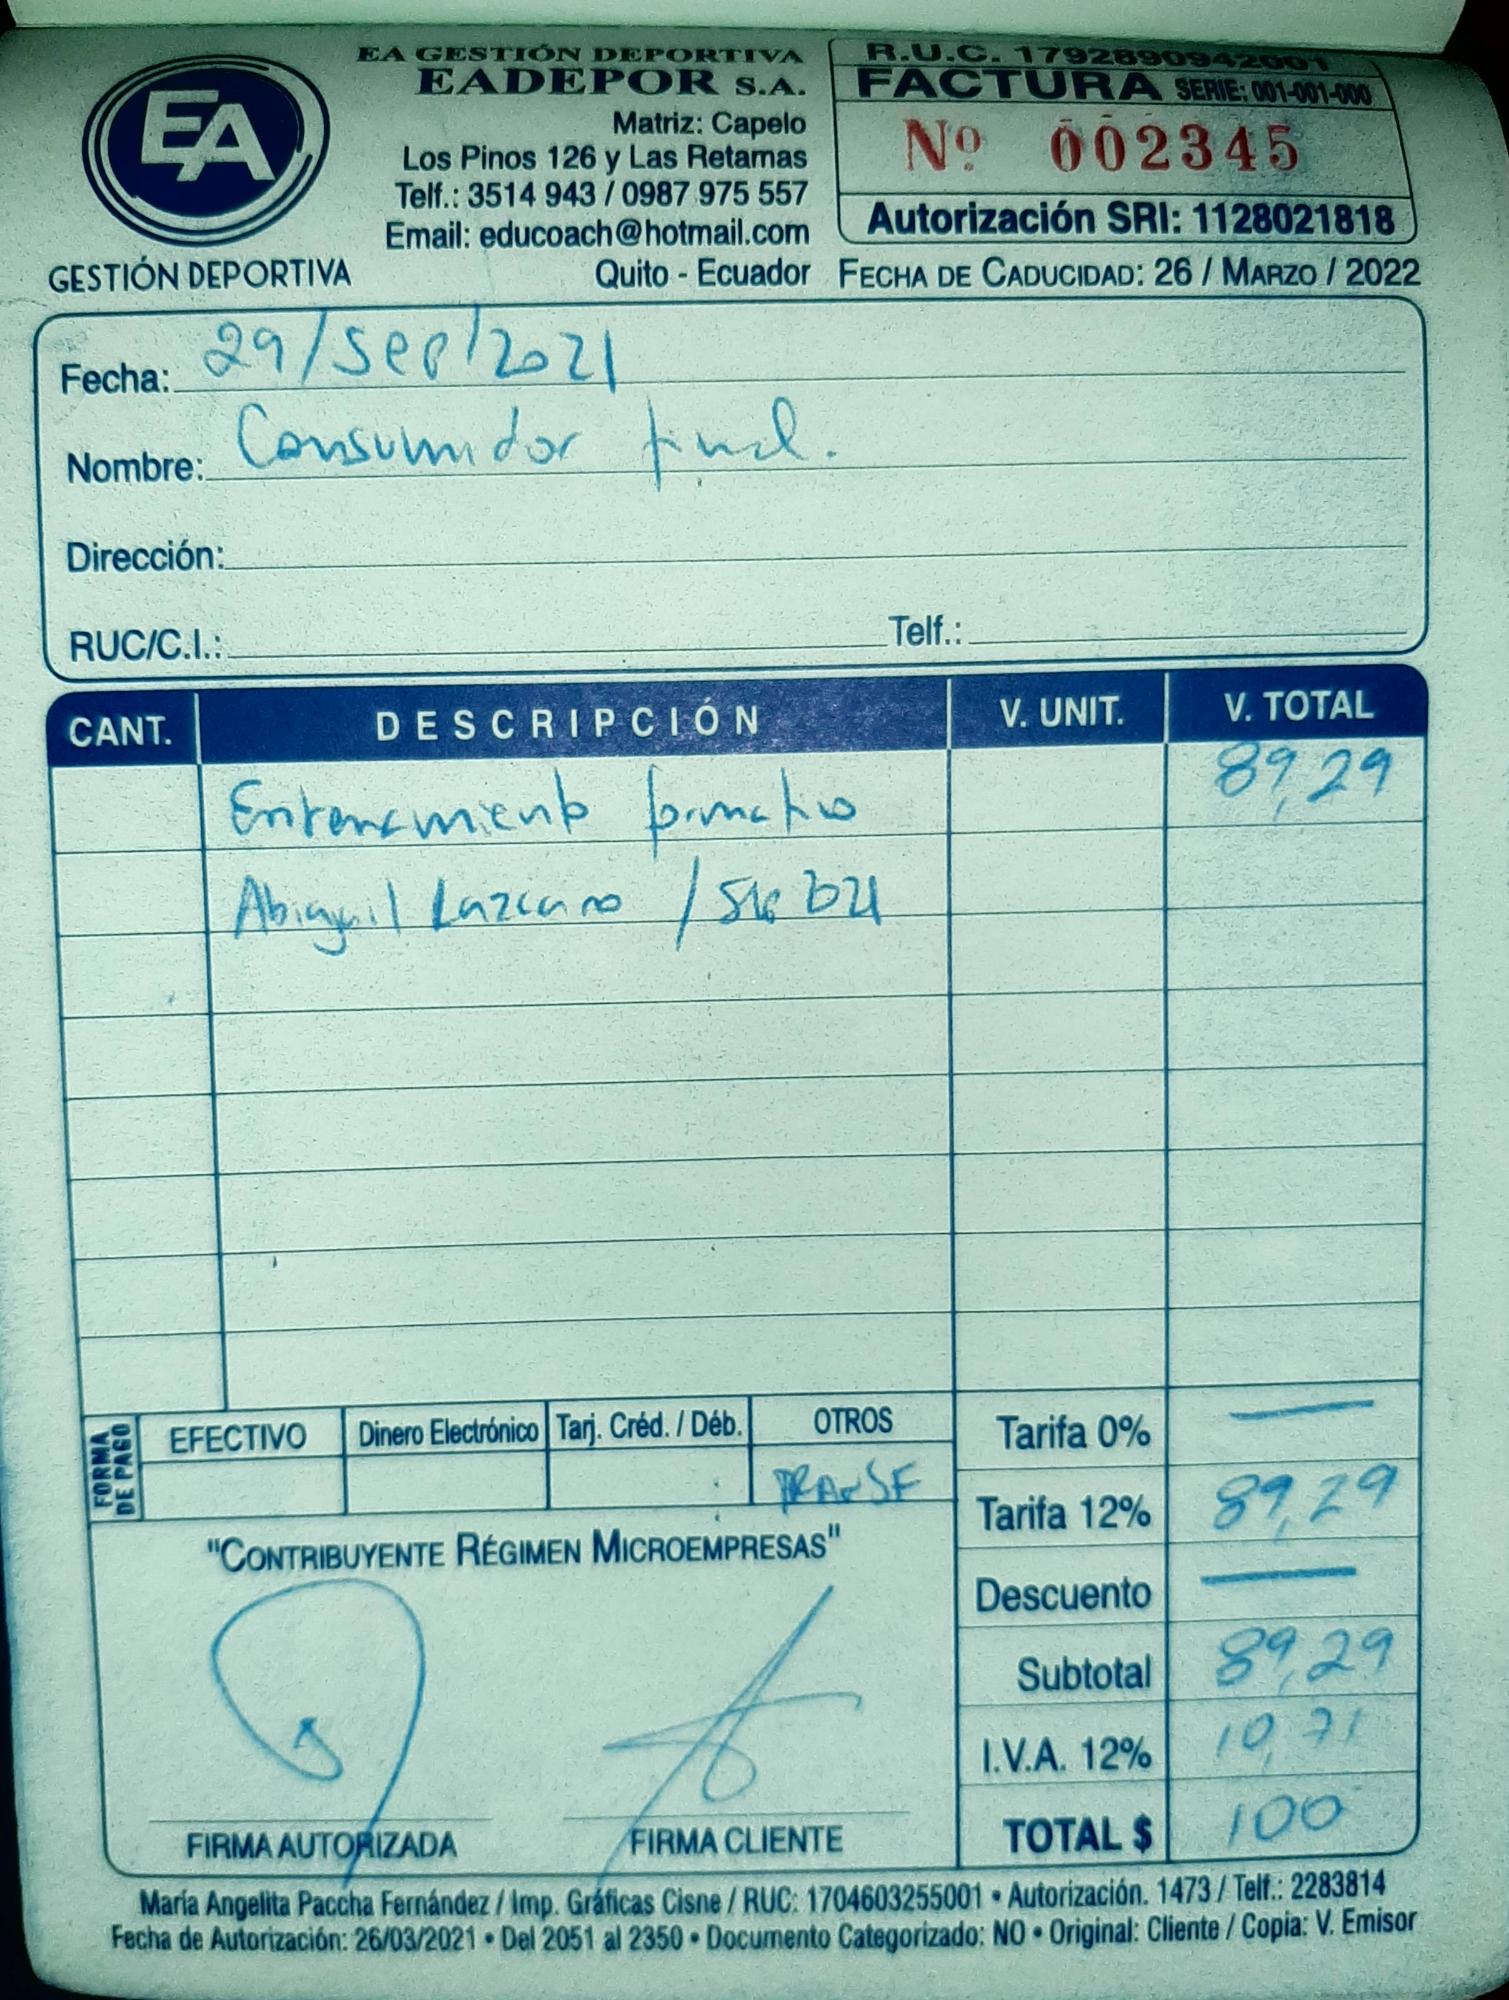 EA
GESTIÓN DEPORTIVA
EA GESTIÓN DEPORTIVA
EADEPOR S.A.
Matriz: Capelo
Los Pinos 126 y Las Retamas
Telf.: 3514 943 / 0987 975 557
Email: educoach@hotmail.com
Quito - Ecuador
R.U.C. 1792890942001
FACTURA SERIE: 001-001-000
Nº 002345
Autorización SRI: 1128021818
FECHA DE CADUCIDAD: 26 / MARZO / 2022
Fecha: 29/Sep/2021
Nombre: Consumidor final.
Dirección:
RUC/C.I.: Telf.:
CANT. DESCRIPCIÓN V. UNIT. V. TOTAL
Entrenamiento formativo 89,29
Abigail Lazcano /
FORMA DE PAGO EFECTIVO Dinero Electrónico Tarj. Créd. / Déb. OTROS
TRANSF
Tarifa 0% —
Tarifa 12% 89,29
Descuento —
Subtotal 89,29
I.V.A. 12% 10,71
TOTAL $ 100
"CONTRIBUYENTE RÉGIMEN MICROEMPRESAS"
FIRMA AUTORIZADA FIRMA CLIENTE
María Angelita Paccha Fernández / Imp. Gráficas Cisne / RUC: 1704603255001 • Autorización. 1473 / Telf.: 2283814
Fecha de Autorización: 26/03/2021 • Del 2051 al 2350 • Documento Categorizado: NO • Original: Cliente / Copia: V. Emisor